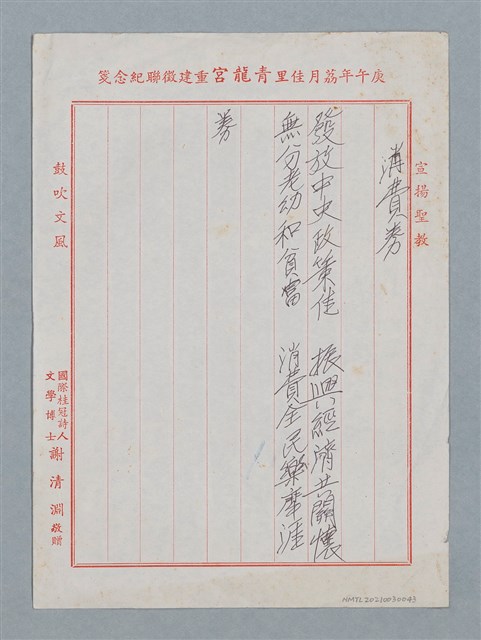 庚午年荔月佳里青龍宮重建徵聯紀念箋
宣揚聖教
消費券
發放中央政策佳　振興經濟共關懷
無分老幼和貧富　消費全民樂生涯
券
鼓吹文風
國際桂冠詩人
文學博士
謝清淵敬贈
NMTL20210030043